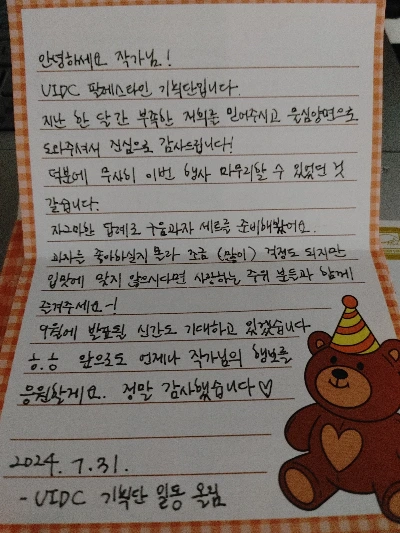 안녕하세요 작가님!
UIDC 팔레스타인 기획단입니다.
지난 한 달간 부족한 저희를 믿어주시고 음심양면으로
도와주셔서 진심으로 감사드립니다!
덕분에 무사히 이번 행사 마무리할 수 있었던 것
같습니다.
자그마한 답례로 구움과자 세트를 준비해봤어요.
과자를 좋아하실지 몰라 조금 (많이) 걱정도 되지만
입맛에 맞지 않으시다면 사랑하는 주위 분들과 함께
즐겨주세요~!
9월에 발표될 신간도 기대하고 있겠습니다
ㅎ.ㅎ 앞으로도 언제나 작가님의 행보를
응원할게요. 정말 감사했습니다♡
2024. 7. 31.
- UIDC 기획단 일동 올림